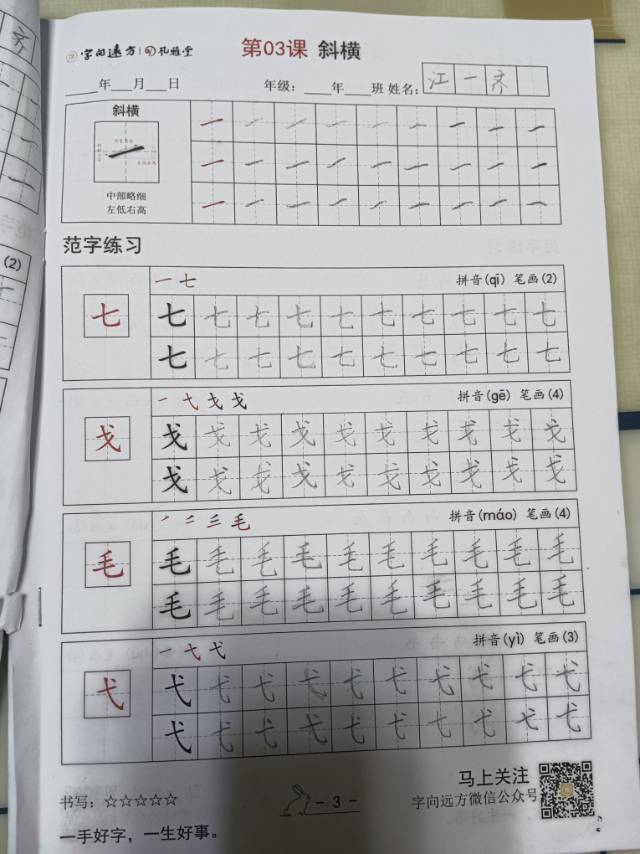 字向远方 孔雅堂 第03课 斜横
____年___月___日 年级：____年____班 姓名：江一齐
斜横
中部略细
左低右高
范字练习
一七 拼音(qī) 笔画(2)
七 七七七七七七七七七七
七七七七七七七七七七
一弋戈戈 拼音(gē) 笔画(4)
戈 戈戈戈戈戈戈戈戈戈戈
戈戈戈戈戈戈戈戈戈戈
毛 拼音(máo) 笔画(4)
毛 毛毛毛毛毛毛毛毛毛毛
毛毛毛毛毛毛毛毛毛毛
一弋弋 拼音(yì) 笔画(3)
弋 弋弋弋弋弋弋弋弋弋弋
弋弋弋弋弋弋弋弋弋弋
马上关注
书写：☆☆☆☆☆ - 3 - 字向远方微信公众号
一手好字，一生好事。